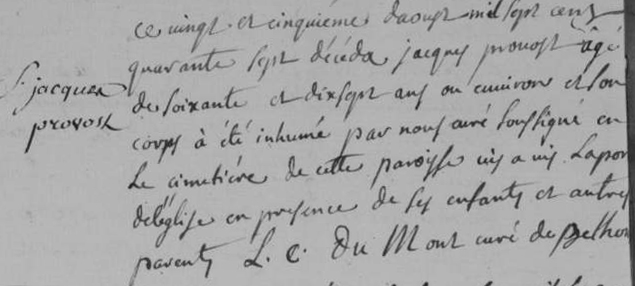 ce vingt et cinquieme daoust mil sept cent
quarante sept déceda jacques provost âgé
S. jacques
provost
de soixante et dixsept ans ou environ et son
corps à été inhumé par nous curé soussigné en
Le cimetiére de cette paroisse vis a vis Lapor
deléglise en presence de ses enfants et autres
parents L. C. Du Mont curé de